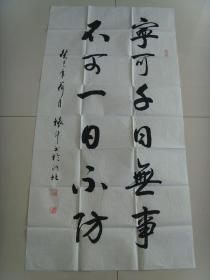 寧可千日無事
不可一日不防
癸巳年